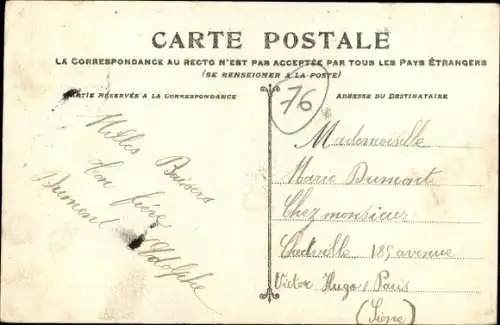 CARTE POSTALE
LA CORRESPONDANCE AU RECTO N'EST PAS ACCEPTÉE PAR TOUS LES PAYS ÉTRANGERS
(SE RENSEIGNER A LA POSTE)
PARTIE RÉSERVÉE A LA CORRESPONDANCE
ADRESSE DU DESTINATAIRE
76
Milles Baisers
ton frère
Dumont Adolphe
Mademoiselle
Marie Dumont
Chez monsieur
185 avenue
Victor Hugo / Paris
(Seine)